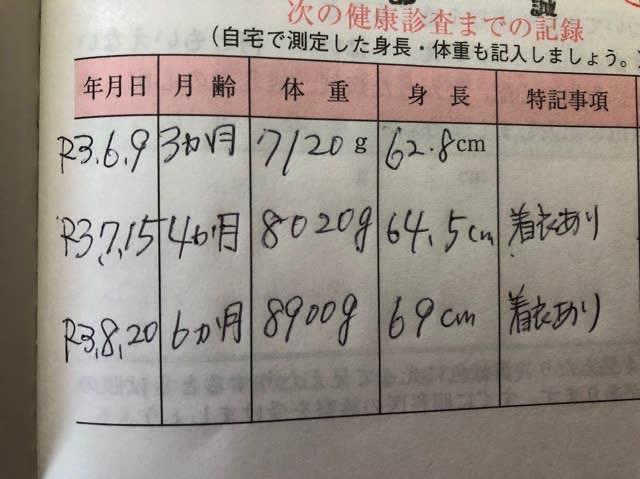 次の健康診査までの記録
(自宅で測定した身長・体重も記入しましょう。)
年月日 月齢 体重 身長 特記事項
R3.6.9 3ヵ月 7120g 62.8cm
R3,7,15 4ヵ月 8020g 64.5cm 着衣あり
R3,8,20 6ヵ月 8900g 69cm 着衣あり